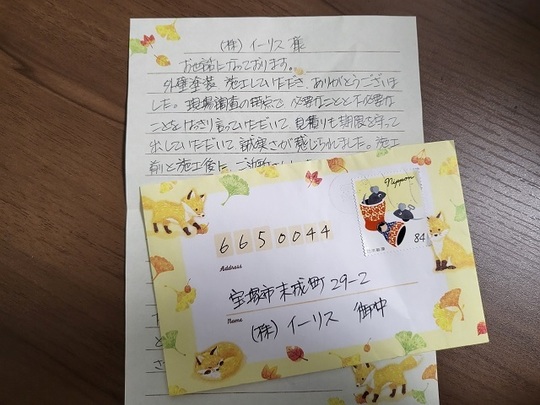 (株) イーリス 様
お世話になっております。
外壁塗装 施工していただき、ありがとうございま
した。現場調査の時点で 必要なことと不必要な
ことをはっきり言っていただいて 見積りも期限を守って
出していただいて 誠実さが感じられました。施工
前と施工後に
nippon
84
6650044
Address
宝塚市末成町29-2
Name
(株) イーリス 御中